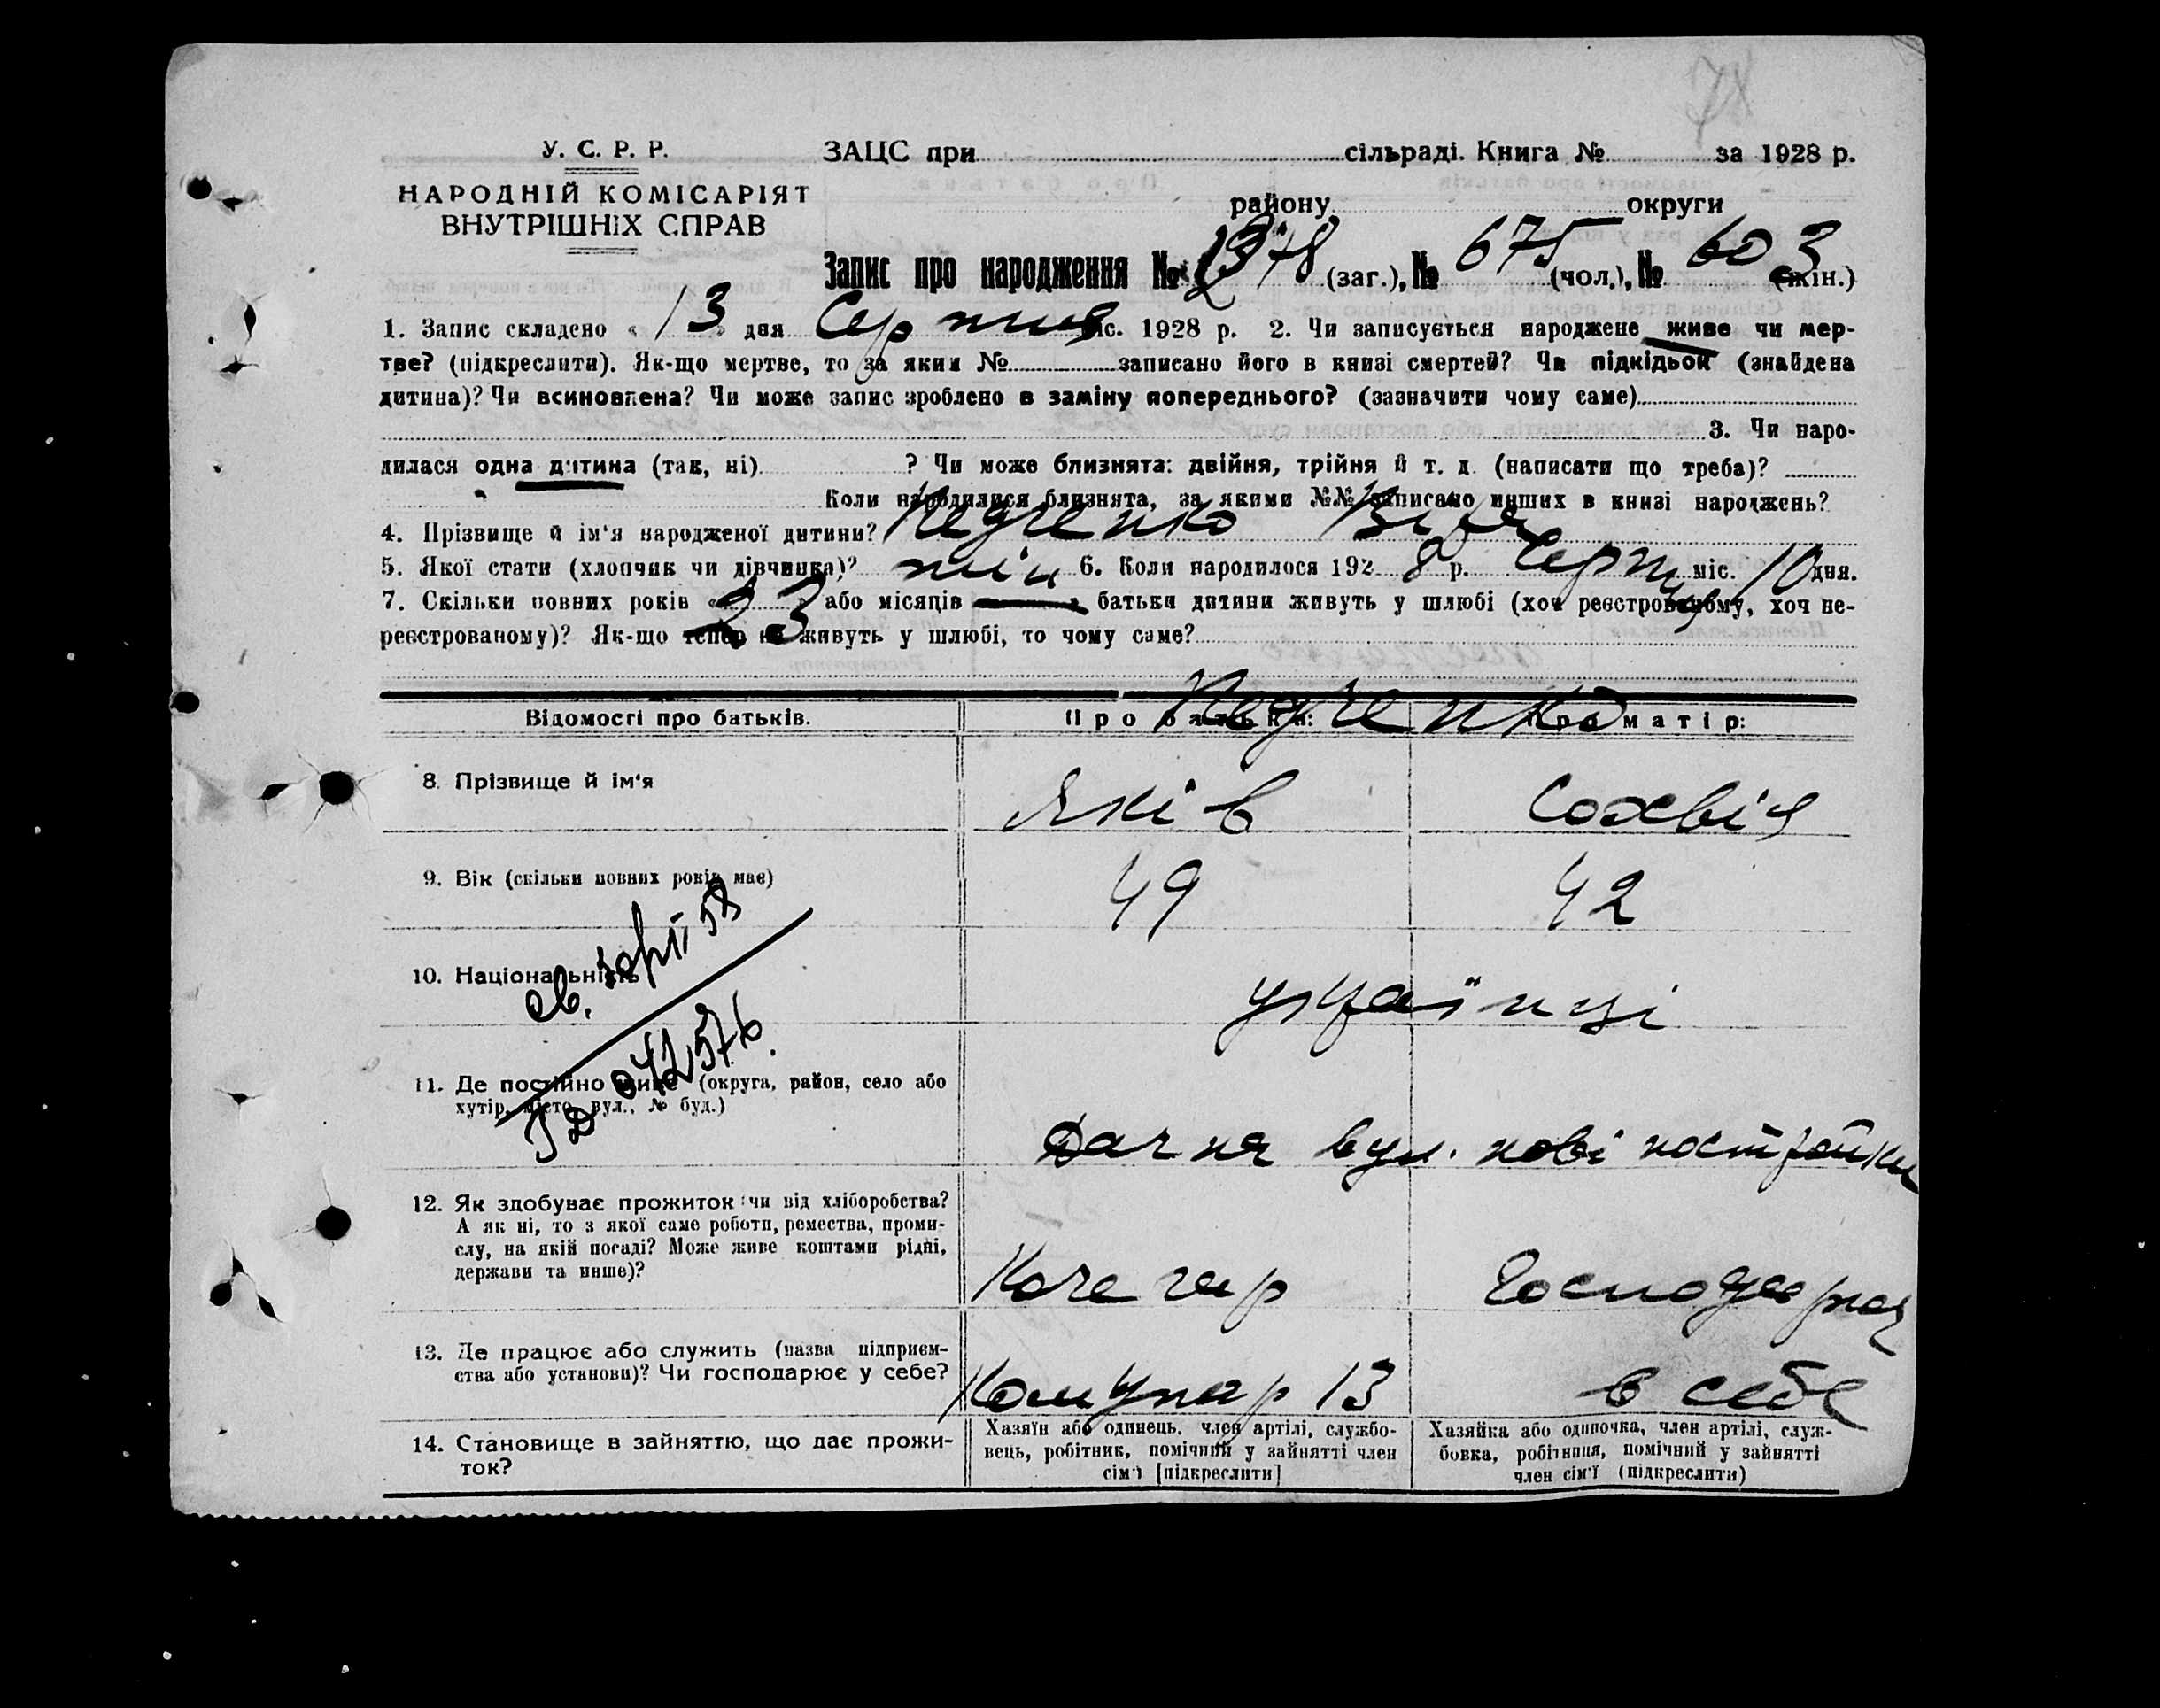 78
У. С. Р. Р.
НАРОДНІЙ КОМІСАРІЯТ
ВНУТРІШНІХ СПРАВ
ЗАЦС при сільраді. Книга № за 1928 р.
району округи
Запис про народження № 1278 (заг.), № 675 (чол.), № 603 (жін.)
1. Запис складено « 13 » дня Серпня міс. 1928 р. 2. Чи записується народжене живе чи мер-
тве? (підкреслити). Як-що мертве, то за яким № записано його в книзі смертей? Чи підкідьок (знайдена
дитина)? Чи всиновлена? Чи може запис зроблено в заміну попереднього? (зазначити чому саме)
3. Чи наро-
дилася одна дитина (так, ні) ? Чи може близнята: двійня, трійня й т. д. (написати що треба)?
Коли народилися близнята, за якими №№ записано инших в книзі народжень?
4. Прізвище й ім'я народженої дитини? Педченко Віра
5. Якої стати (хлопчик чи дівчинка)? жін 6. Коли народилося 1928 р. Серпня міс. 10 дня.
7. Скільки повних років « 23 » або місяців батьки дитини живуть у шлюбі (хоч реєстрованому, хоч не-
реєстрованому)? Як-що тепер не живуть у шлюбі, то чому саме?
Відомості про батьків. Про батька: Про матір:
Педченко
8. Прізвище й ім'я Яків Сохвія
9. Вік (скільки повних років має) 49 42
10. Національність українці
11. Де постійно живе (округа, район, село або
хутір, місто, вул., № буд.)
Дачна вул. нові постройки
12. Як здобуває прожиток: чи від хліборобства?
А як ні, то з якої саме роботи, ремества, проми-
слу, на якій посаді? Може живе коштами рідні,
держави та инше)?
Кочегар Господарка
13. Де працює або служить (назва підприєм-
ства або установи)? Чи господарює у себе?
Комунар 13 в себе
14. Становище в зайняттю, що дає прожи-
ток?
Хазяїн або одинець, член артілі, службо-
вець, робітник, помічний у зайнятті член
сім'ї [підкреслити]
Хазяйка або одиночка, член артілі, служ-
бовка, робітниця, помічний у зайнятті
член сім'ї (підкреслити)